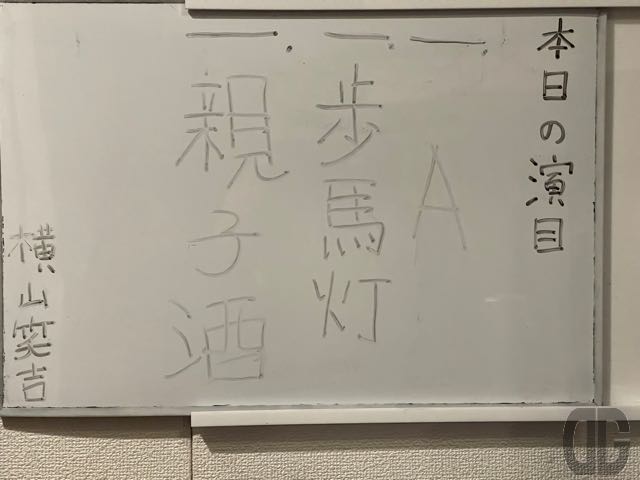 本日の演目
一. A
一. 歩馬灯
一. 親子酒
横山笑吉
DG